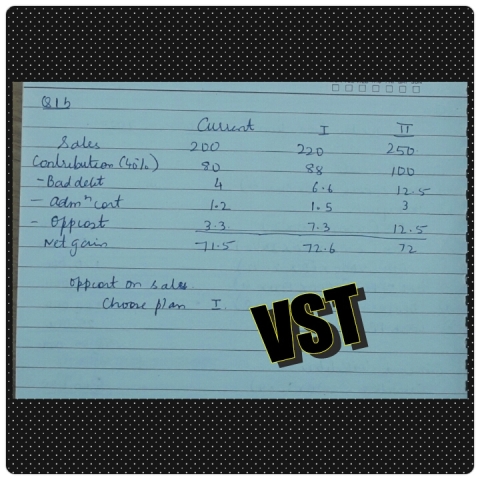 Q1b
Current I II
Sales 200 220 250
Contribution (40%) 80 88 100
- Bad debt 4 6.6 12.5
- Admⁿ cost 1.2 1.5 3
- Oppcost 3.3 7.3 12.5
Net gain 71.5 72.6 72
Oppcost on sales.
Choose plan I.
VST